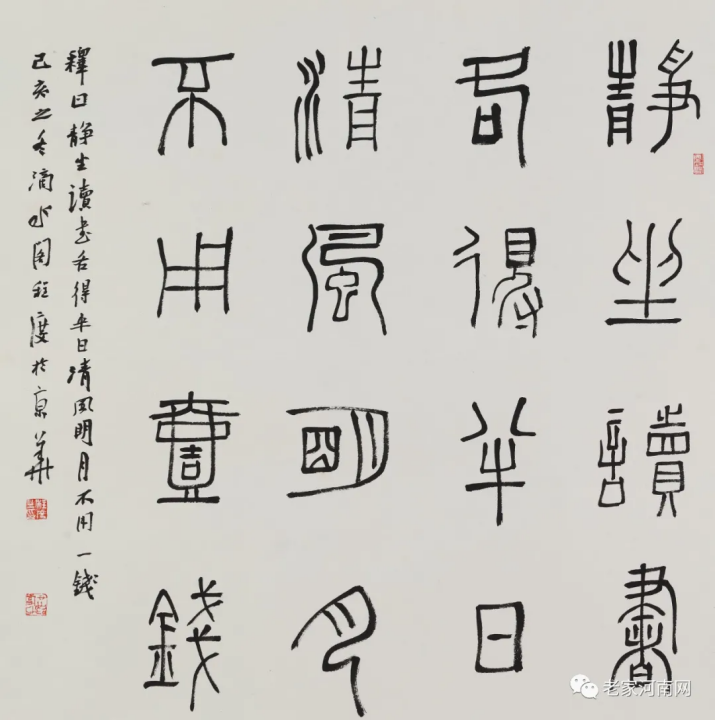 靜坐讀書
各得半日
清風明月
不用壹錢
釋曰静坐讀书各得半日清風明月不用一錢
己亥之冬滴水阁程度於京華
老家河南网